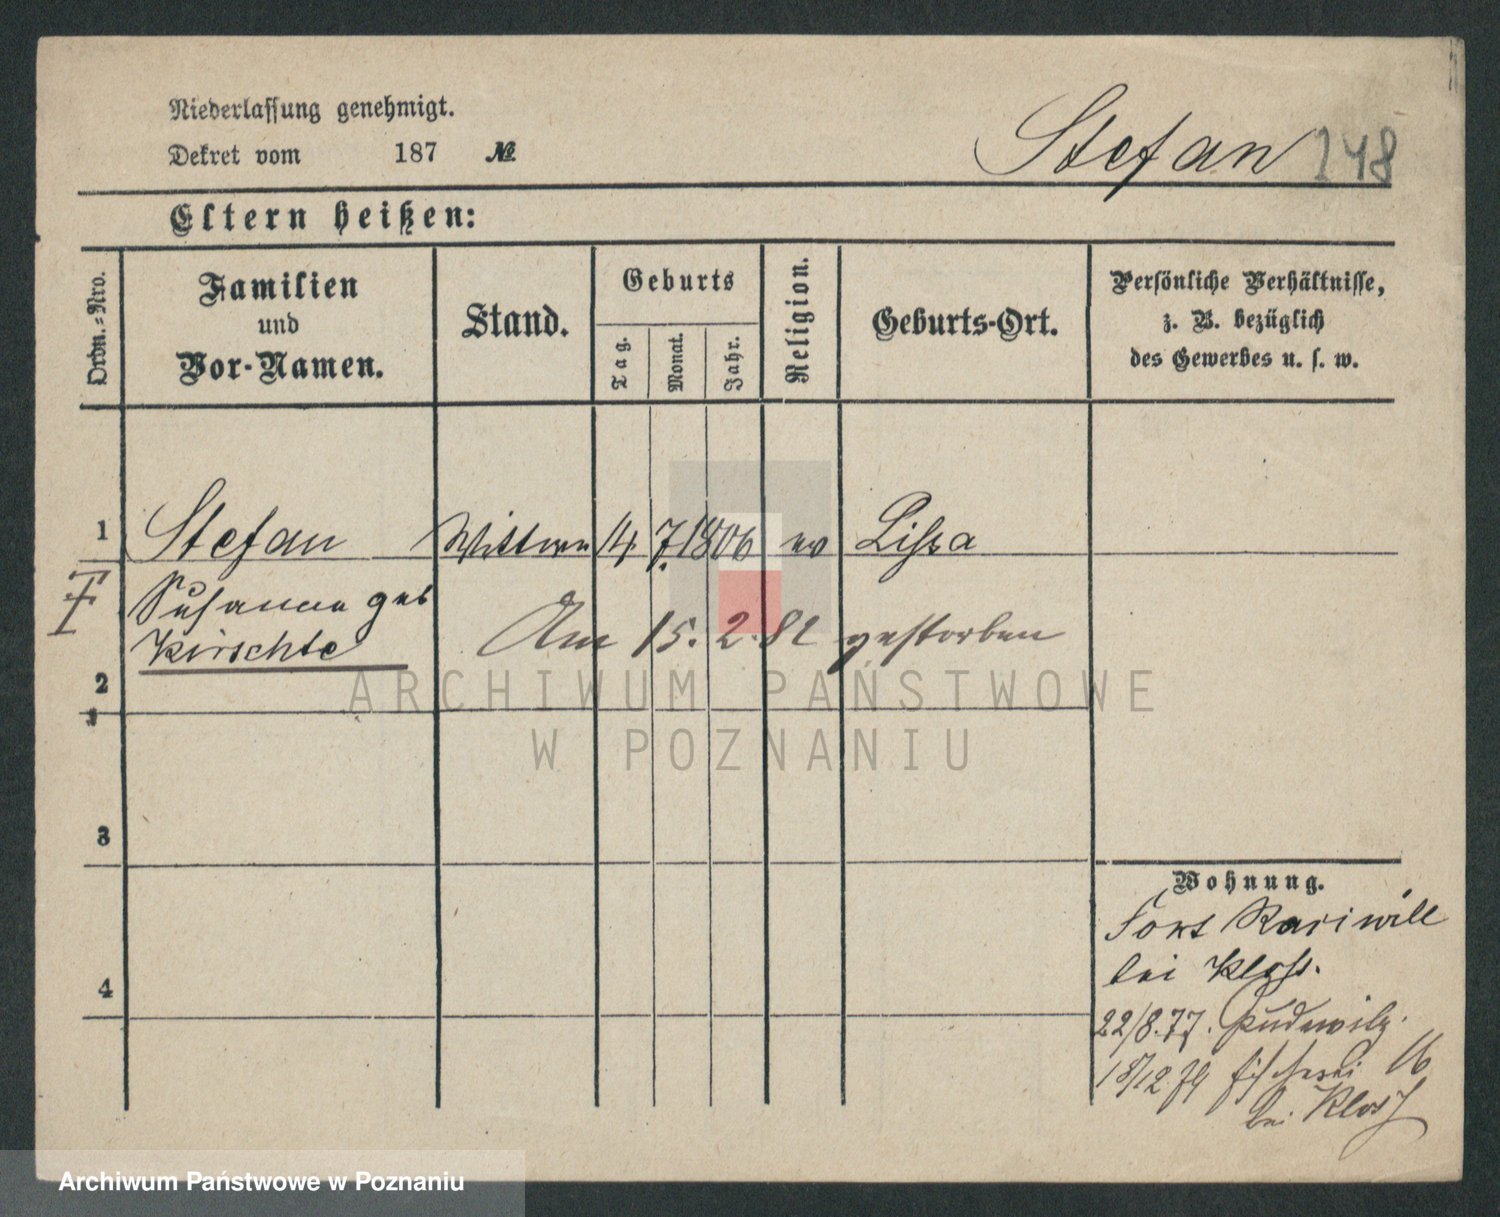 Niederlassung genehmigt.
Dekret vom 187 №
Stefan 148
Eltern heißen:
Ordn.-Nro.
Familien
und
Vor-Namen.
Stand.
Geburts
Tag.
Monat.
Jahr.
Religion.
Geburts-Ort.
Persönliche Verhältnisse,
z. B. bezüglich
des Gewerbes u. s. w.
1 Stefan Wittwe 14 7. 1806 ev Lissa
Susanna geb
Kirschte
Am 15. 2. 82 gestorben
2
3
4
ARCHIWUM PAŃSTWOWE
W POZNANIU
Wohnung.
Fort Rariwill
bei Kloss.
22/8.77. Pudewitz.
18/12 79 Fischerei 16
bei Kloss
Archiwum Państwowe w Poznaniu